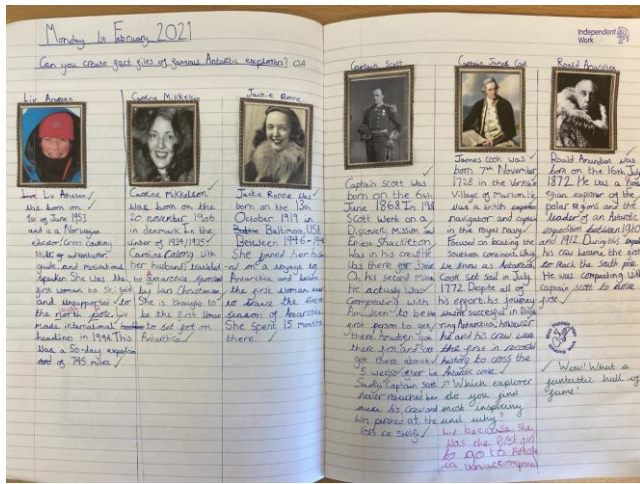 Monday 1st February 2021
Can you create fact files of famous Antarctic explorers?
Independent
Work
Liv Arnesen
Liv Arnesen
was born on the
1st of June 1953
and is a Norwegian
educator, cross country
guide, and motivational
Speaker. She was the
first woman to ski solo
and unsupported to
made international
headlines in 1994. This
was a 50-day expedition
and of 745 miles
Caroline Mikkelson
Caroline Mikkelson
was born on the
20 november 1906
in denmark. In the
winter of 1934/1935
Caroline along with
her husband travelled
to Antarctica, sponsored
She is thought to
be the first woman
to set foot on
Antarctica
Jackie Ronne
Jackie Ronne was
born on the 13th
October 1919 in
Baltimore, USA
Between 1946-1948
She joined her husb
and on a voyage to
Antarctica and became
the first woman
season of Antarctica
She spent 15 months
there.
Captain Scott
Captain Scott was
born on the 6th
June 1868. In 1901
Scott went on a
Discovery Mission and
Ernest Shackleton
was in his crew. He
was there for
On his second mission
He actually was
Competing with
Amudsen to be the
first person to get
there. Amudsen got
there first and
got there about
5 weeks after
Sadly, Captain Scott
never returned
cause his crew and
him perished at the
Ross ice shelf
Captain James Cook
James Cook was
born 7th November
1728 in the Yorkshire
Village of Marton. He
was a british explorer
navigator and captain
in the royal navy.
Focused on locating the
southern continent which
we know as Antarctica,
Cook set sail in July
1772. Despite all of
his effort, his journey
wasnt successful in
ing Antarctica, however
he and his crew were
the first in recorded
history to cross the
Antarctic circle
Which explorer
do you find
most inspiring
and why?
Liv because she
was the first girl
to go to
Roald Amundsen
Roald Amundsen was
born on the 16th July
1872. He was a
gian explorer of the
polar regions and the
leader of an Antarctic
expedition between 1910
and 1912. During his exped
his crew became the first
to reach the south pole.
He was competing with
captain scott to arrive
first.
Wow! What a
fantastic hall of
fame!